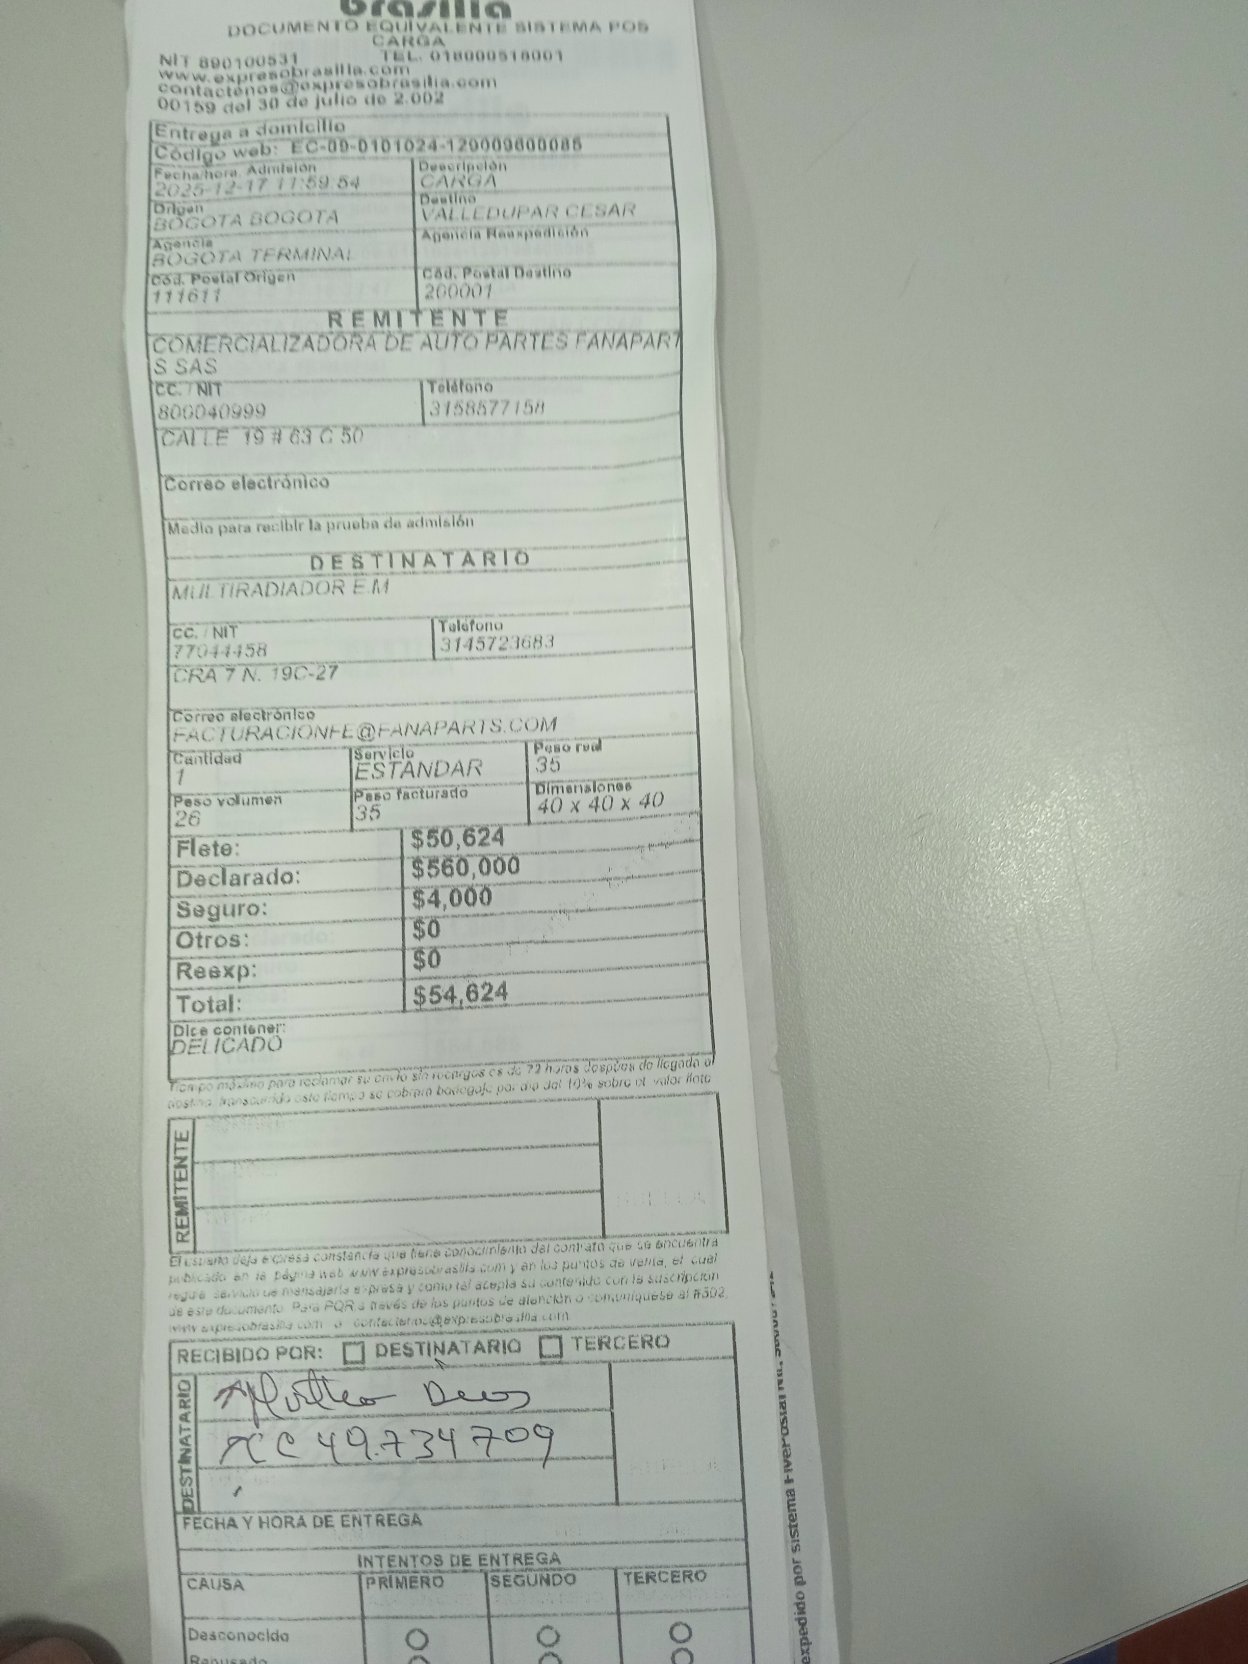 brasilia
DOCUMENTO EQUIVALENTE SISTEMA POS
CARGA
NIT 890100531 TEL. 018000518001
www.expresobrasilia.com
contactenos@expresobrasilia.com
00159 del 30 de julio de 2.002
Entrega a domicilio
Código web: EC-09-0101024-129009600085
Fecha/hora Admisión Descripción
2025-12-17 11:59:54 CARGA
Origen Destino
BOGOTA BOGOTA VALLEDUPAR CESAR
Agencia Agencia Reexpedición
BOGOTA TERMINAL
Cód. Postal Origen Cód. Postal Destino
111611 200001
REMITENTE
COMERCIALIZADORA DE AUTO PARTES FANAPART
S SAS
CC. / NIT Teléfono
800040999 3158577158
CALLE 19 # 63 C 50
Correo electrónico
Medio para recibir la prueba de admisión
DESTINATARIO
MULTIRADIADOR E.M
CC. / NIT Teléfono
77044458 3145723683
CRA 7 N. 19C-27
Correo electrónico
FACTURACIONFE@FANAPARTS.COM
Cantidad Servicio Peso real
1 ESTANDAR 35
Peso volumen Peso facturado Dimensiones
26 35 40 x 40 x 40
Flete: $50,624
Declarado: $560,000
Seguro: $4,000
Otros: $0
Reexp: $0
Total: $54,624
Dice contener:
DELICADO
Tiempo máximo para reclamar su envío sin recargos es de 72 horas después de llegada al
destino, transcurrido este tiempo se cobrará bodegaje por día del 10% sobre el valor flete
REMITENTE
El usuario deja expresa constancia que tiene conocimiento del contrato que se encuentra
publicado en la página web www.expresobrasilia.com y en los puntos de venta, el cual
regula servicio de mensajería expresa y como tal acepta su contenido con la suscripción
de este documento. Para PQR a través de los puntos de atención o comuníquese al #502
www.expresobrasilia.com o contactenos@expresobrasilia.com
RECIBIDO POR: DESTINATARIO TERCERO
DESTINATARIO
CC 49.734709
FECHA Y HORA DE ENTREGA
INTENTOS DE ENTREGA
CAUSA PRIMERO SEGUNDO TERCERO
Desconocido
Rehusado
expedido por sistema